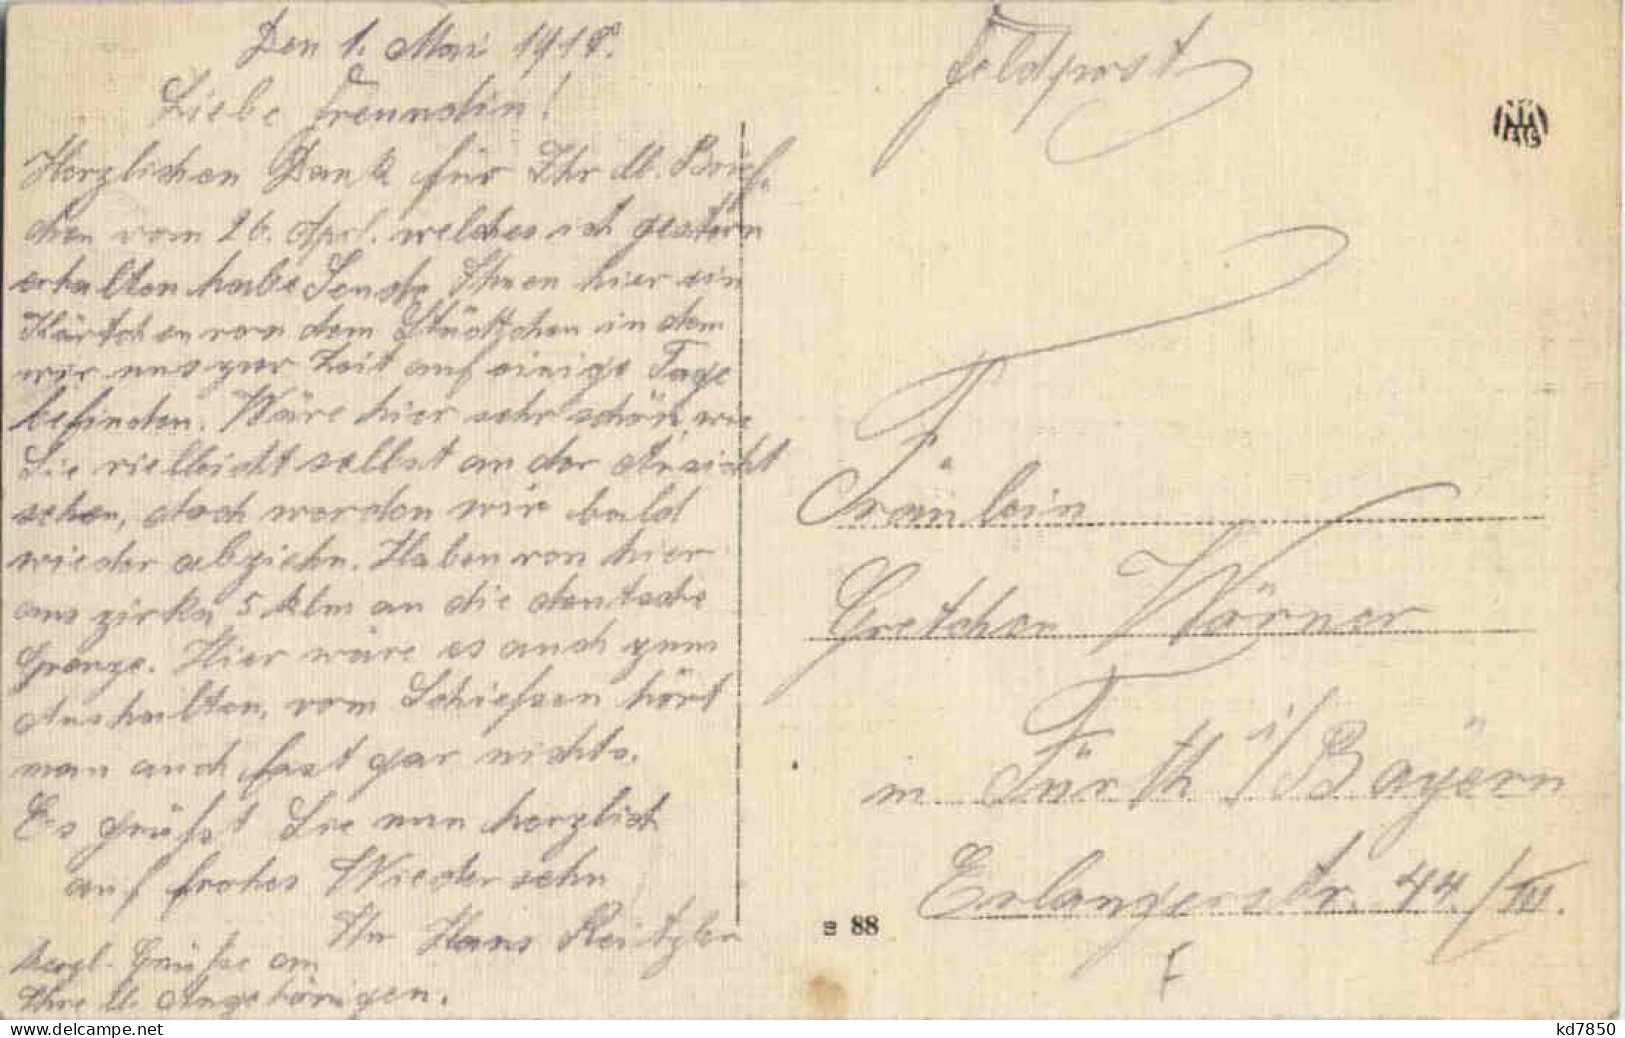 Den 1. Mai 1918.
Liebe Freundin!
Herzlichen Dank für Ihr lb. Brief-
chen vom 26. Aprl. welches ich gestern
erhalten habe Sende Ihnen hier ein
Kärtchen von dem Städtchen in dem
wir uns zur Zeit auf einige Tage
befinden. Wäre hier sehr schön, wie
Sie vielleicht selbst an der Ansicht
sehen, doch werden wir bald
wieder abziehn. Haben von hier
aus zirka 5 klm an die deutsche
Grenze. Hier wäre es auch zum
Aushalten, vom Schiessen hört
man auch fast gar nichts.
Es grüßt Sie nun herzlich
auf frohes Wiedersehn
Ihr Hans Reitzler
Herzl. Grüße an
Ihre lb. Angehörigen.
Feldpost
Fräulein
Gretchen Wörner
in Fürth i/Bayern
Erlangerstr. 44/III.
88
kd7850